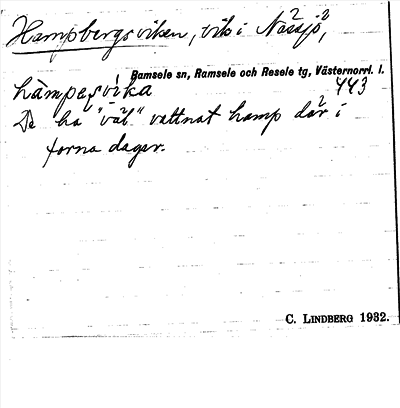 Hampbergsviken, vik i Nässjö,
Ramsele sn, Ramsele och Resele tg, Västernorrl. l.
hämpesvika 443
De ha "väl" vattnat hamp där i
forna dagar.
C. LINDBERG 1932.